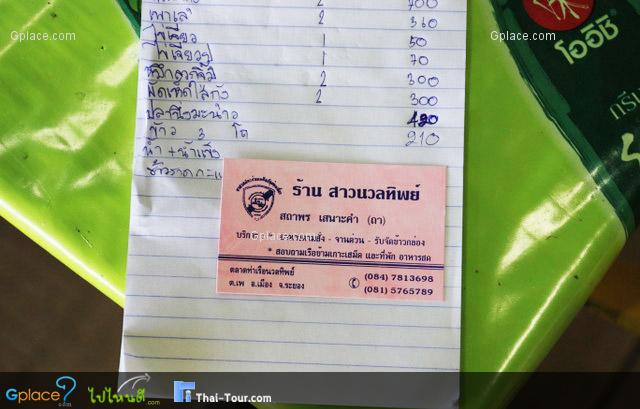 เปาเล่ 2 360
ไข่เจียว 1 50
ไข่เจียวปู 1 70
2 300
ผัดเห็ดใส่กุ้ง 2 300
ปลานึ่งมะนาว 420
ข้าว 3 โถ 210
น้ำ + น้ำแข็ง
ร้าน สาวนวลทิพย์
สถาพร เสนาะคำ (ถา)
อาหารตามสั่ง - จานด่วน - รับจัดข้าวกล่อง
* สอบถามเรือข้ามเกาะเสม็ด และที่พัก อาหารสด
ตลาดท่าเรือนวลทิพย์ (084) 7813698
ต.เพ อ.เมือง จ.ระยอง (081) 5765789
โออิชิ
Gplace.com
Gplace.com
Gplace.com
Gplace.com
Gplace.com
Gplace?.com ไปไหนดี.com Thai-Tour.com